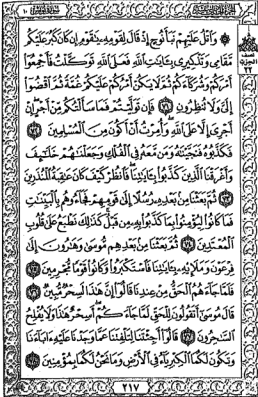 نصف
الحزب
٢٢
۞ وَٱتْلُ عَلَيْهِمْ نَبَأَ نُوحٍ إِذْ قَالَ لِقَوْمِهِۦ يَٰقَوْمِ إِن كَانَ كَبُرَ عَلَيْكُم
مَّقَامِى وَتَذْكِيرِى بِـَٔايَٰتِ ٱللَّهِ فَعَلَى ٱللَّهِ تَوَكَّلْتُ فَأَجْمِعُوٓا۟
أَمْرَكُمْ وَشُرَكَآءَكُمْ ثُمَّ لَا يَكُنْ أَمْرُكُمْ عَلَيْكُمْ غُمَّةً ثُمَّ ٱقْضُوٓا۟
إِلَىَّ وَلَا تُنظِرُونِ ٧١ فَإِن تَوَلَّيْتُمْ فَمَا سَأَلْتُكُم مِّنْ أَجْرٍ إِنْ
أَجْرِىَ إِلَّا عَلَى ٱللَّهِ وَأُمِرْتُ أَنْ أَكُونَ مِنَ ٱلْمُسْلِمِينَ ٧٢
فَكَذَّبُوهُ فَنَجَّيْنَٰهُ وَمَن مَّعَهُۥ فِى ٱلْفُلْكِ وَجَعَلْنَٰهُمْ خَلَٰٓئِفَ
وَأَغْرَقْنَا ٱلَّذِينَ كَذَّبُوا۟ بِـَٔايَٰتِنَا فَٱنظُرْ كَيْفَ كَانَ عَٰقِبَةُ ٱلْمُنذَرِينَ
٧٣ ثُمَّ بَعَثْنَا مِنۢ بَعْدِهِۦ رُسُلًا إِلَىٰ قَوْمِهِمْ فَجَآءُوهُم بِٱلْبَيِّنَٰتِ
فَمَا كَانُوا۟ لِيُؤْمِنُوا۟ بِمَا كَذَّبُوا۟ بِهِۦ مِن قَبْلُ كَذَٰلِكَ نَطْبَعُ عَلَىٰ قُلُوبِ
ٱلْمُعْتَدِينَ ٧٤ ثُمَّ بَعَثْنَا مِنۢ بَعْدِهِم مُّوسَىٰ وَهَٰرُونَ إِلَىٰ
فِرْعَوْنَ وَمَلَإِي۟هِۦ بِـَٔايَٰتِنَا فَٱسْتَكْبَرُوا۟ وَكَانُوا۟ قَوْمًا مُّجْرِمِينَ ٧٥
فَلَمَّا جَآءَهُمُ ٱلْحَقُّ مِنْ عِندِنَا قَالُوٓا۟ إِنَّ هَٰذَا لَسِحْرٌ مُّبِينٌ ٧٦
قَالَ مُوسَىٰٓ أَتَقُولُونَ لِلْحَقِّ لَمَّا جَآءَكُمْ أَسِحْرٌ هَٰذَا وَلَا يُفْلِحُ
ٱلسَّٰحِرُونَ ٧٧ قَالُوٓا۟ أَجِئْتَنَا لِتَلْفِتَنَا عَمَّا وَجَدْنَا عَلَيْهِ ءَابَآءَنَا
وَتَكُونَ لَكُمَا ٱلْكِبْرِيَآءُ فِى ٱلْأَرْضِ وَمَا نَحْنُ لَكُمَا بِمُؤْمِنِينَ ٧٨
٢١٧